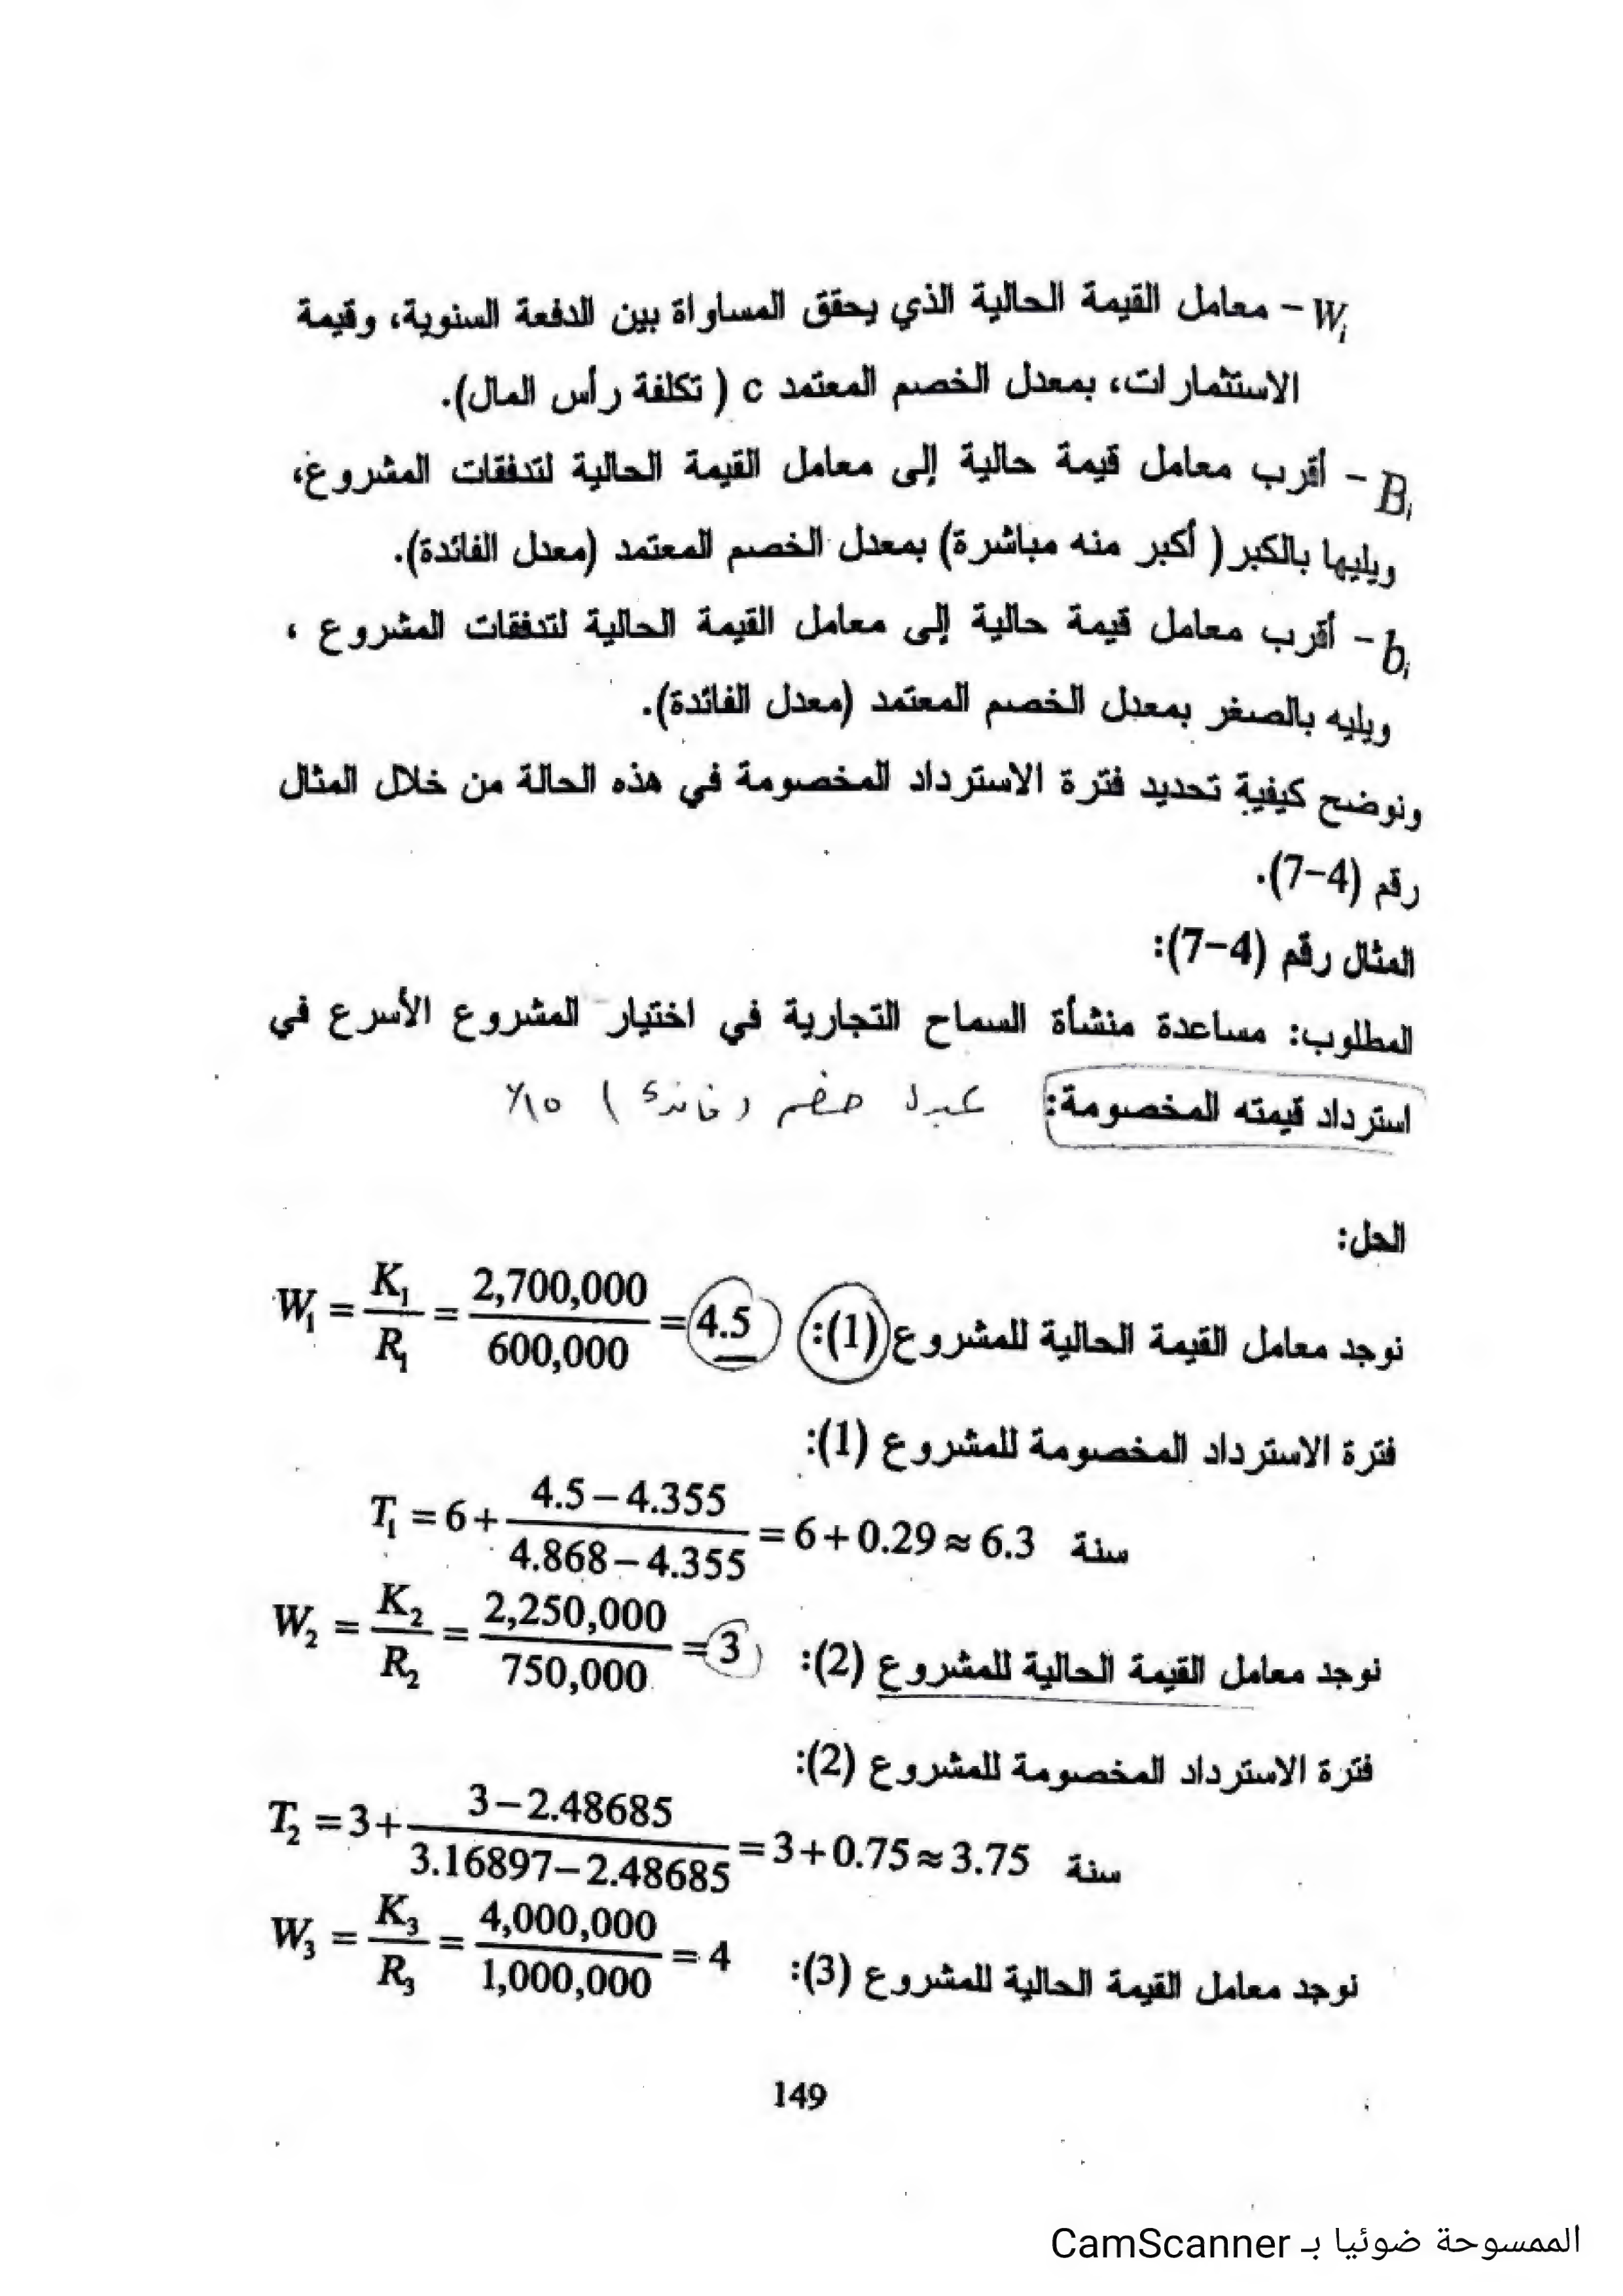 W_i - معامل القيمة الحالية الذي يحقق المساواة بين الدفعة السنوية، وقيمة
الاستثمارات، بمعدل الخصم المعتمد c ( تكلفة رأس المال).
B_i - أقرب معامل قيمة حالية إلى معامل القيمة الحالية لتدفقات المشروع،
ويليها بالكبر( أكبر منه مباشرة) بمعدل الخصم المعتمد (معدل الفائدة).
b_i - أقرب معامل قيمة حالية إلى معامل القيمة الحالية لتدفقات المشروع ،
ويليه بالصغر بمعدل الخصم المعتمد (معدل الفائدة).
ونوضح كيفية تحديد فترة الاسترداد المخصومة في هذه الحالة من خلال المثال
رقم (4-7).
المثال رقم (4-7):
المطلوب: مساعدة منشأة السماح التجارية في اختيار المشروع الأسرع في
استرداد قيمته المخصومة: خصم ( فائدة ) ١٥٪
الحل:
نوجد معامل القيمة الحالية للمشروع (1): W_1 = K_1 / R_1 = 2,700,000 / 600,000 = 4.5
فترة الاسترداد المخصومة للمشروع (1):
T_1 = 6 + (4.5 – 4.355) / (4.868 – 4.355) = 6 + 0.29 ≈ 6.3 سنة
نوجد معامل القيمة الحالية للمشروع (2): W_2 = K_2 / R_2 = 2,250,000 / 750,000 = 3
فترة الاسترداد المخصومة للمشروع (2):
T_2 = 3 + (3 – 2.48685) / (3.16897 – 2.48685) = 3 + 0.75 ≈ 3.75 سنة
نوجد معامل القيمة الحالية للمشروع (3): W_3 = K_3 / R_3 = 4,000,000 / 1,000,000 = 4
149
الممسوحة ضوئيا بـ CamScanner